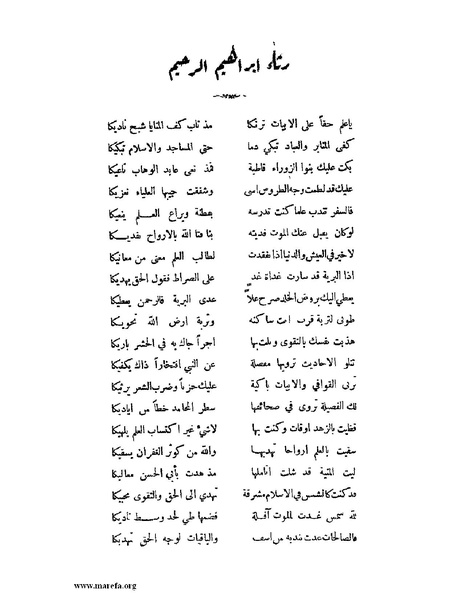 رثاء ابراهيم الرحيم
ياعلم حقاً على الابيات ترثيكا مذ ناب كف المنايا شبح ناديكا
كفى المنابر والعباد تبكي دما حتى المساجد والاسلام تبكيكا
بكت عليك بنوا الزوراء قاطبة فمذ نعى عابد الوهاب ناعيكا
عليك قد لطمت وجه الطروس اسى وشققت جيبها العلياء تعزيكا
فالسفر تندب علما كنت تدرسه بعظة ويراع العلم ينعيكا
لوكان يقبل عنك الموت فديته بالارواح نفديكا
لاخير في العيش والدنيا اذا فقدت لطالب العلم معنى من معانيكا
اذا البرية قد سارت غداة غد على الصراط فقول الحق يهديكا
يعطي اليك بروض الخلد صرح علاً عدى البرية فالرحمن يعطيكا
طوبى لتربة قرب انت ساكنه وتربة ارض الله تحويكا
هذبت نفسك بالتقوى ونلت بها اجراً جاك به في الحشر باريكا
تتلو الاحاديث ترويها مفصلة عن النبي افتخاراً ذاك يكفيكا
ترى القوافي والابيات باكية عليك حزناً وضرب الشعر يرثيكا
لك الفضيلة تروى في صحائفها سطر المحامد خطاً من اياديكا
قضيت بالزهد اوقات وكنت بها لاشيء غير اكتساب العلم يلهيكا
سقيت بالعلم ارواحا تهديها والله من كوثر الغفران يسقيكا
ليت المنية قد شلت اناملها مذ هدت بأبي الحسن معاليكا
قد كنت كالشمس في الاسلام مشرقة تهدي الى الحق والتقوى محبيكا
لله شمس غدت للموت آفلة فضمها طي لحد وسط ناديكا
فالصالحات غدت تندبه من اسف والباقيات لوجه الحق تهديكا
www.marefa.org